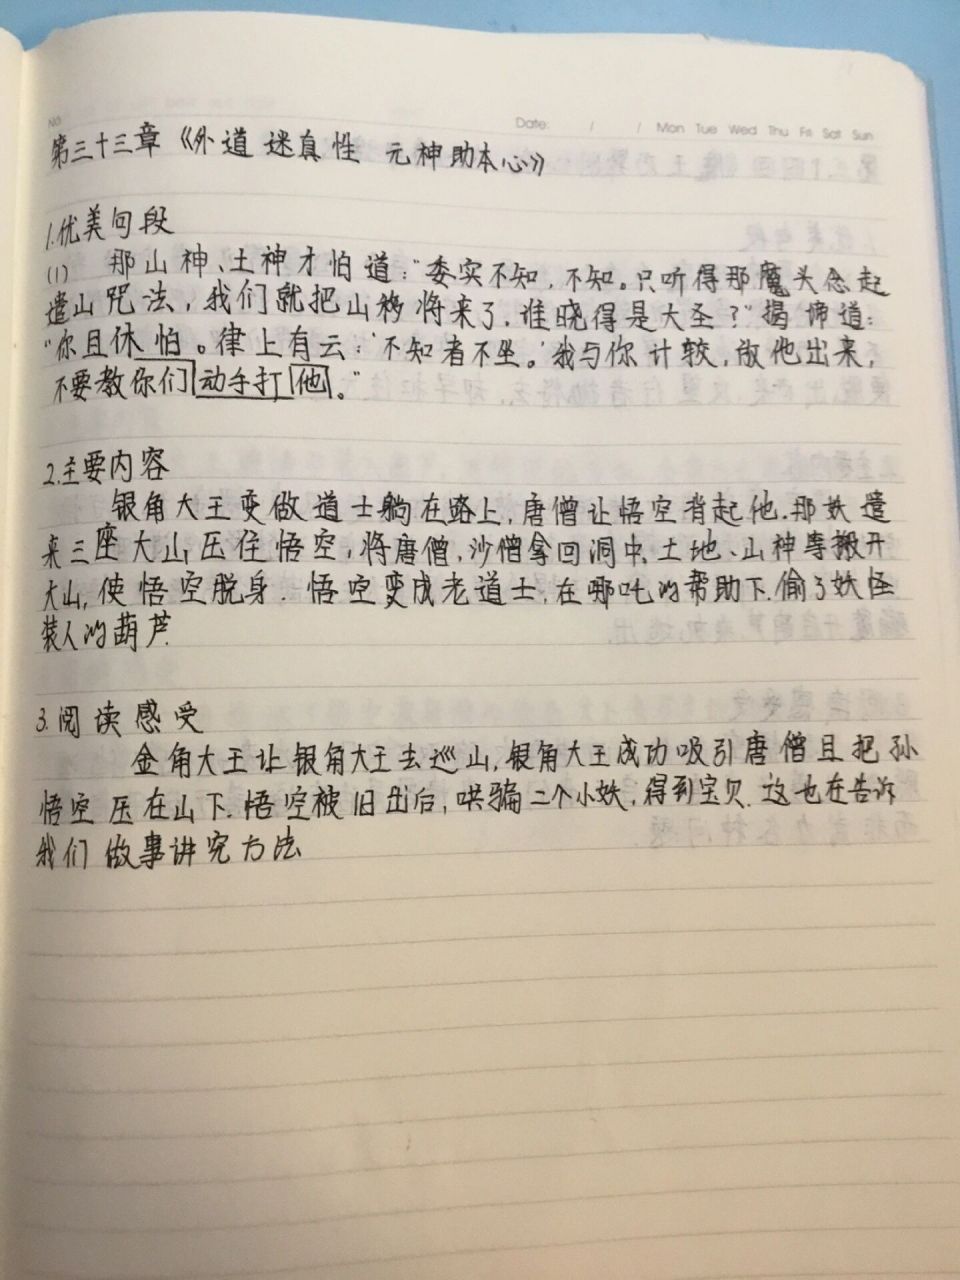 No
Date: / / Mon Tue Wed Thu Fri Sat Sun
第三十三章《外道迷真性 元神助本心》
1.优美句段
(1) 那山神、土神才怕道:"委实不知,不知。只听得那魔头念起
遣山咒法,我们就把山移将来了.谁晓得是大圣?"揭谛道:
"你且休怕。律上有云:'不知者不坐。'我与你计较,放他出来,
不要教你们动手打他。"
2.主要内容
银角大王变做道士躺在路上,唐僧让悟空背起他.那妖遣
来三座大山压住悟空,将唐僧,沙僧拿回洞中.土地、山神等搬开
大山,使悟空脱身.悟空变成老道士,在哪吒的帮助下.偷了妖怪
装人的葫芦.
3.阅读感受
金角大王让银角大王去巡山,银角大王成功吸引唐僧且把孙
悟空压在山下.悟空被旧出后,哄骗二个小妖,得到宝贝.这也在告诉
我们做事讲究方法